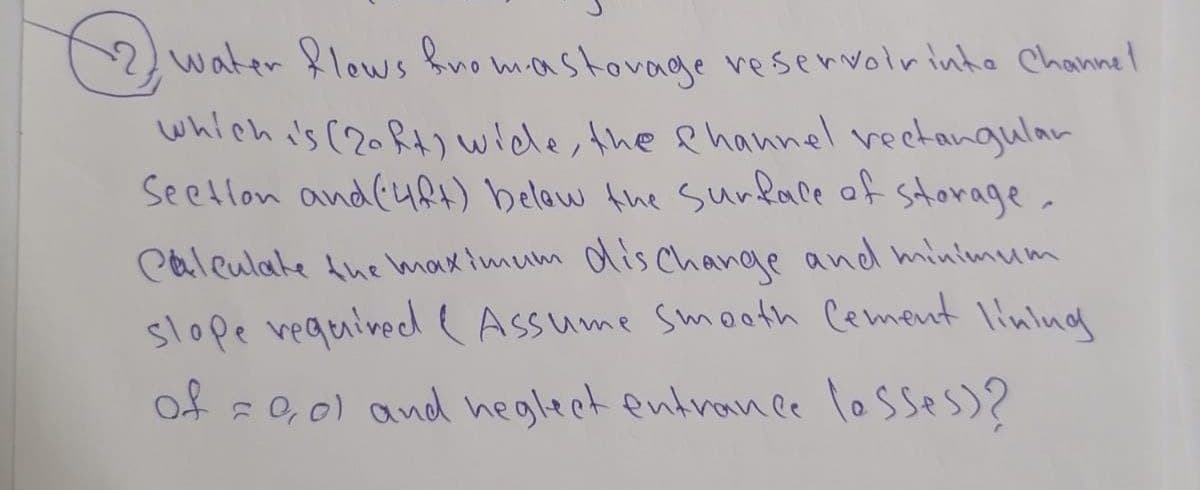 2) water flows from a storage reservoir into Channel
which is (20ft) wide, the Channel rectangular
Section and (4ft) below the surface of storage.
Calculate the maximum discharge and minimum
slope required ( Assume smooth Cement lining
of = 0,01 and neglect entrance losses)?